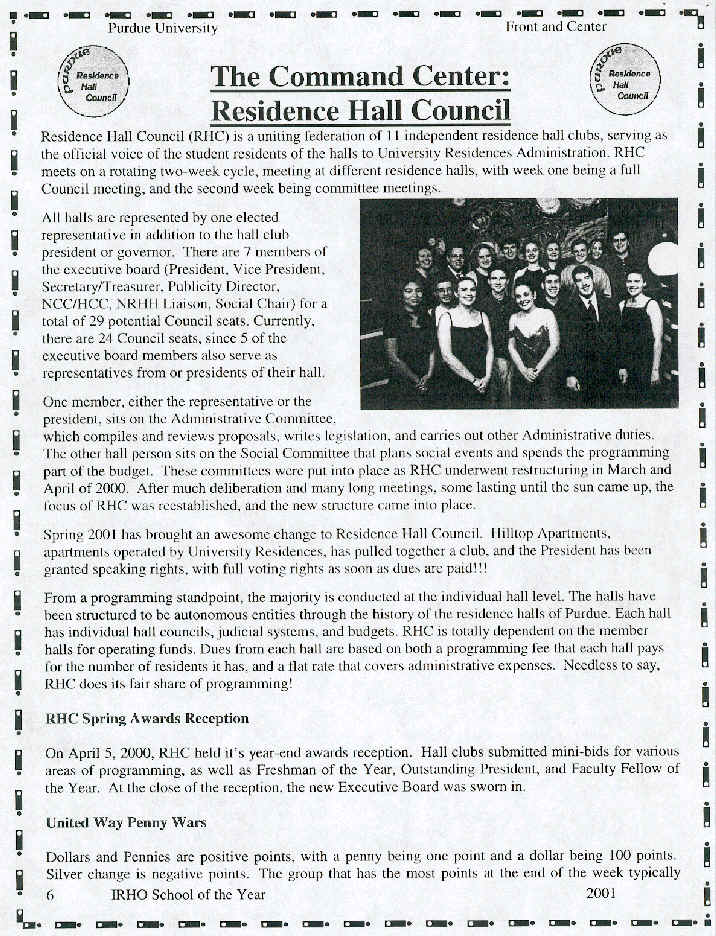 Purdue University
Front and Center
PURDUE
Residence
Hall
Council
The Command Center:
Residence Hall Council
PURDUE
Residence
Hall
Council
Residence Hall Council (RHC) is a uniting federation of 11 independent residence hall clubs, serving as
the official voice of the student residents of the halls to University Residences Administration. RHC
meets on a rotating two-week cycle, meeting at different residence halls, with week one being a full
Council meeting, and the second week being committee meetings.
All halls are represented by one elected
representative in addition to the hall club
president or governor. There are 7 members of
the executive board (President, Vice President,
Secretary/Treasurer, Publicity Director,
NCC/HCC, NRHH Liaison, Social Chair) for a
total of 29 potential Council seats. Currently,
there are 24 Council seats, since 5 of the
executive board members also serve as
representatives from or presidents of their hall.
One member, either the representative or the
president, sits on the Administrative Committee,
which compiles and reviews proposals, writes legislation, and carries out other Administrative duties.
The other hall person sits on the Social Committee that plans social events and spends the programming
part of the budget. These committees were put into place as RHC underwent restructuring in March and
April of 2000. After much deliberation and many long meetings, some lasting until the sun came up, the
focus of RHC was reestablished, and the new structure came into place.
Spring 2001 has brought an awesome change to Residence Hall Council. Hilltop Apartments,
apartments operated by University Residences, has pulled together a club, and the President has been
granted speaking rights, with full voting rights as soon as dues are paid!!!
From a programming standpoint, the majority is conducted at the individual hall level. The halls have
been structured to be autonomous entities through the history of the residence halls of Purdue. Each hall
has individual hall councils, judicial systems, and budgets. RHC is totally dependent on the member
halls for operating funds. Dues from each hall are based on both a programming fee that each hall pays
for the number of residents it has, and a flat rate that covers administrative expenses. Needless to say,
RHC does its fair share of programming!
RHC Spring Awards Reception
On April 5, 2000, RHC held it's year-end awards reception. Hall clubs submitted mini-bids for various
areas of programming, as well as Freshman of the Year, Outstanding President, and Faculty Fellow of
the Year. At the close of the reception, the new Executive Board was sworn in.
United Way Penny Wars
Dollars and Pennies are positive points, with a penny being one point and a dollar being 100 points.
Silver change is negative points. The group that has the most points at the end of the week typically
6 IRHO School of the Year 2001